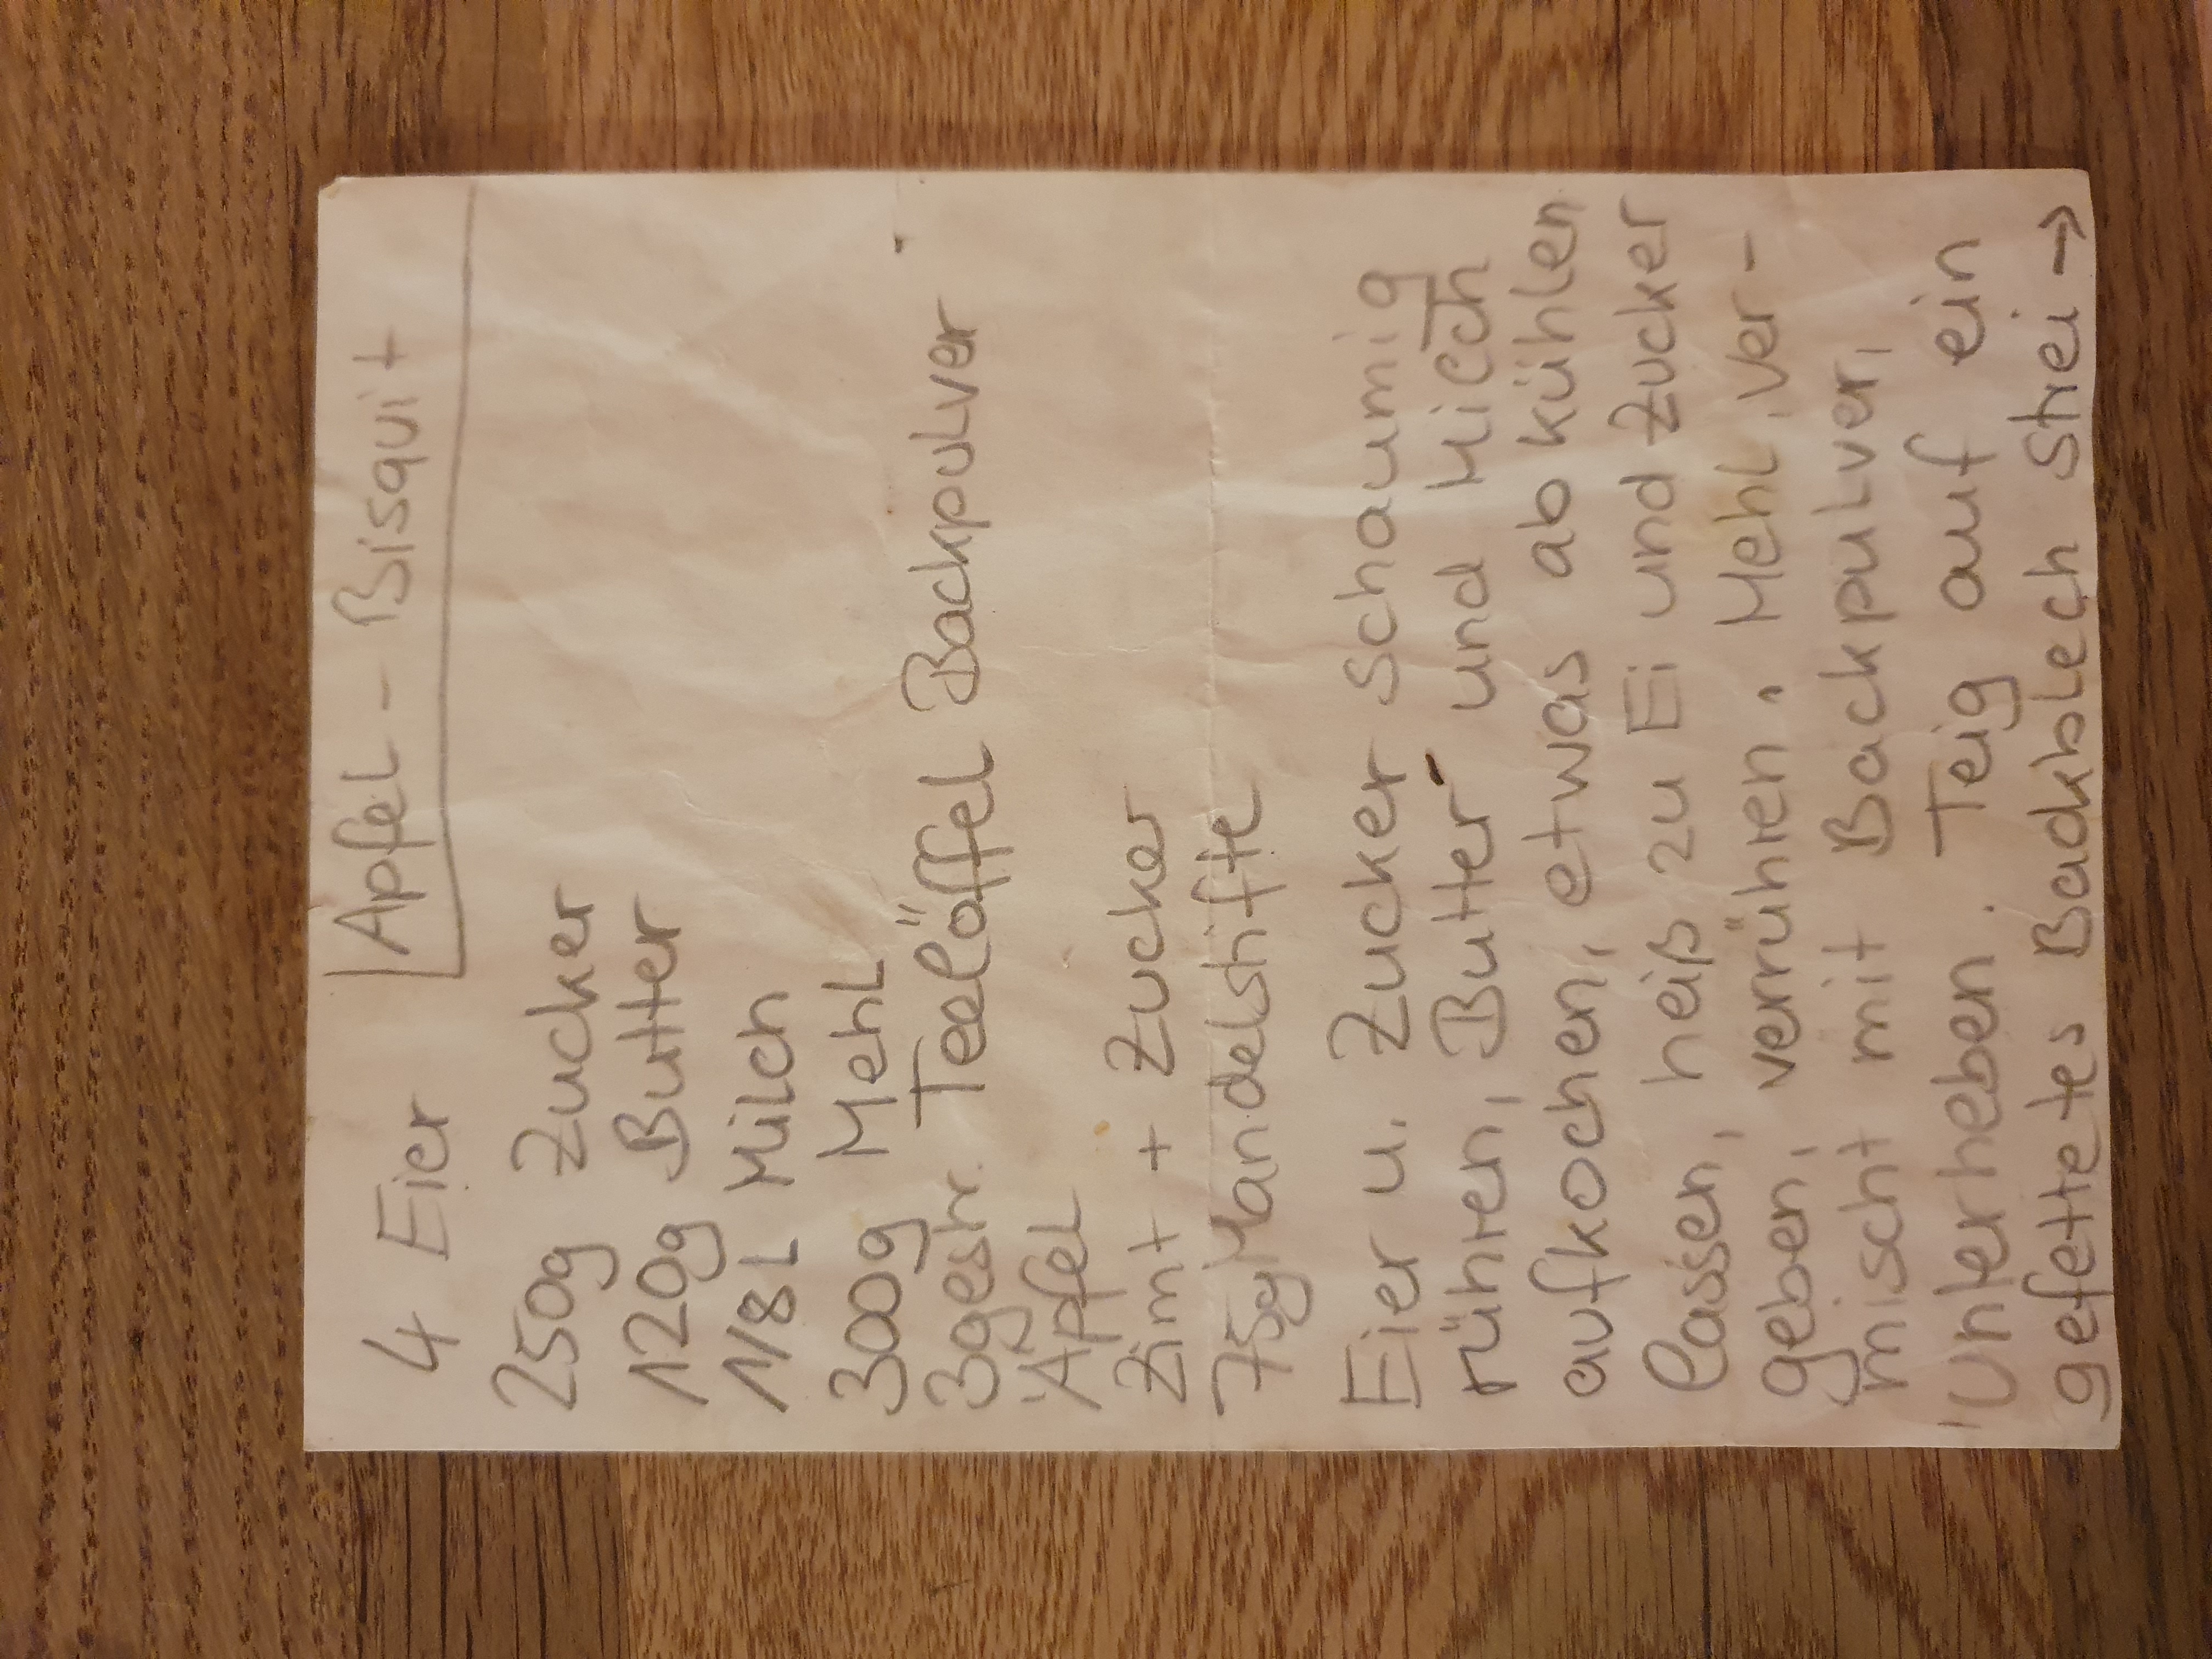 Apfel - Bisquit
4 Eier
250g Zucker
120g Butter
1/8 L Milch
300g Mehl
3 gestr. Teelöffel Backpulver
Äpfel
Zimt + Zucker
75g Mandelstifte
Eier u. Zucker schaumig
rühren, Butter und Milch
aufkochen, etwas abkühlen
lassen, heiß zu Ei und Zucker
geben, verrühren. Mehl, ver-
mischt mit Backpulver,
unterheben. Teig auf ein
gefettetes Backblech strei →